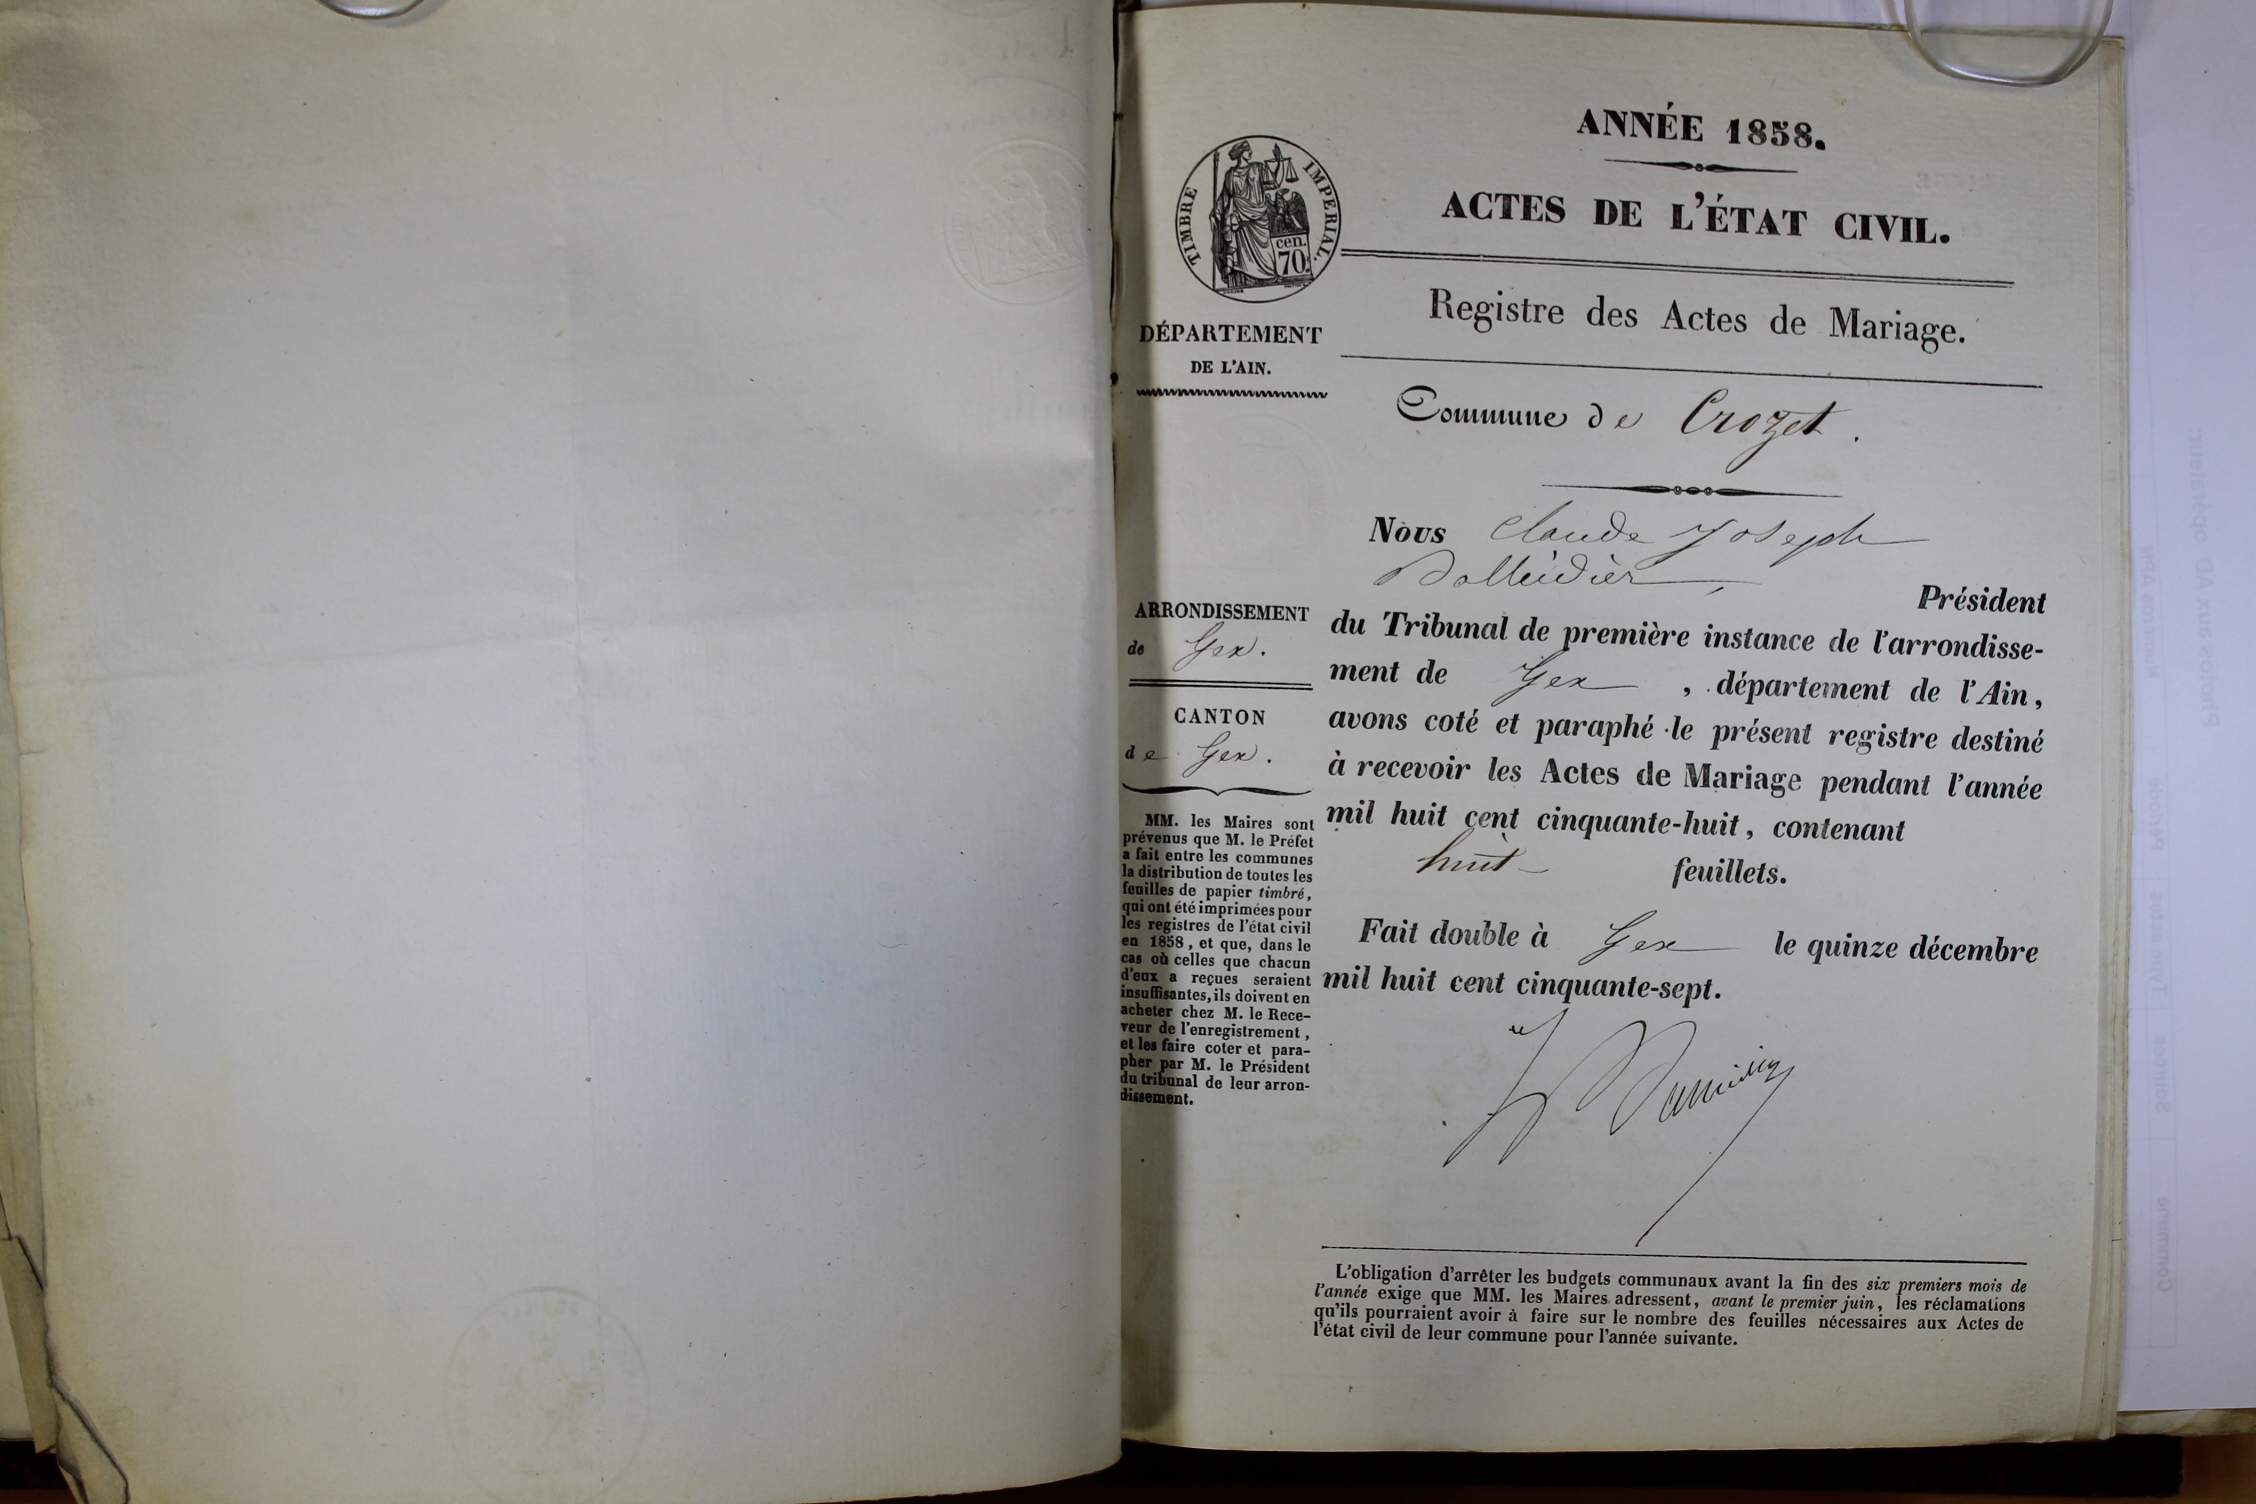 ANNÉE 1858.
ACTES DE L'ÉTAT CIVIL.
TIMBRE IMPERIAL.
cen.
70.
Registre des Actes de Mariage.
DÉPARTEMENT
DE L'AIN.
Commune de Crozet.
Nous Claude Joseph
Président
ARRONDISSEMENT
de Gex.
CANTON
de Gex.
MM. les Maires sont
prévenus que M. le Préfet
a fait entre les communes
la distribution de toutes les
feuilles de papier timbré,
qui ont été imprimées pour
les registres de l'état civil
en 1858, et que, dans le
cas où celles que chacun
d'eux a reçues seraient
insuffisantes, ils doivent en
acheter chez M. le Rece-
veur de l'enregistrement,
et les faire coter et para-
pher par M. le Président
du tribunal de leur arron-
dissement.
du Tribunal de première instance de l'arrondisse-
ment de Gex, département de l'Ain,
avons coté et paraphé le présent registre destiné
à recevoir les Actes de Mariage pendant l'année
mil huit cent cinquante-huit, contenant
huit feuillets.
Fait double à Gex le quinze décembre
mil huit cent cinquante-sept.
L'obligation d'arrêter les budgets communaux avant la fin des six premiers mois de
l'année exige que MM. les Maires adressent, avant le premier juin, les réclamations
qu'ils pourraient avoir à faire sur le nombre des feuilles nécessaires aux Actes de
l'état civil de leur commune pour l'année suivante.